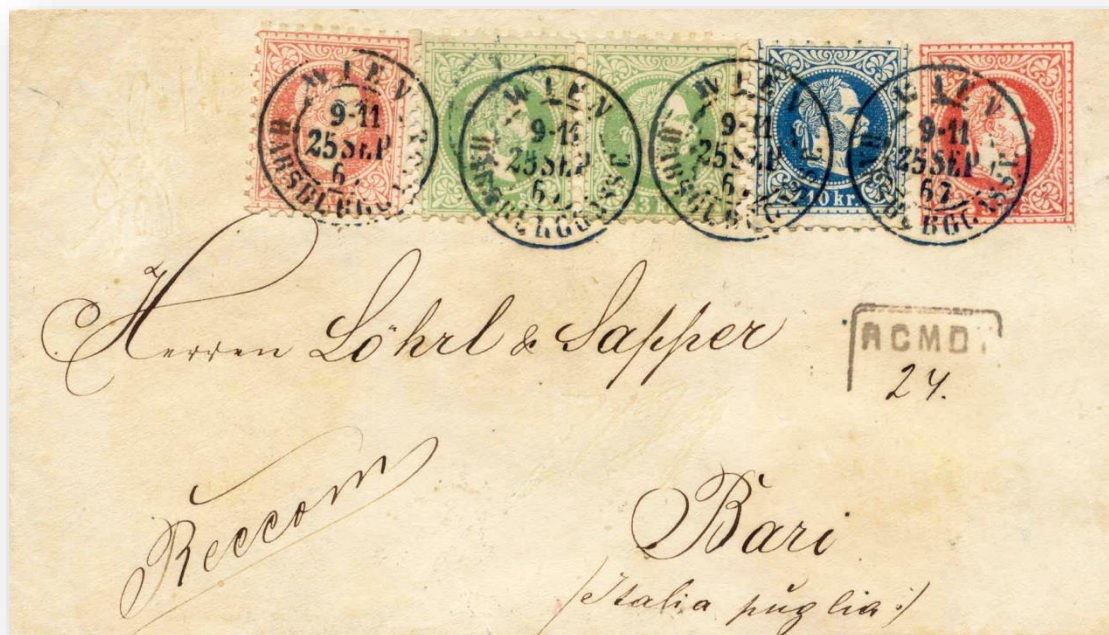 WIEN
9-11
25 SEP
6.
HABSBURGGASSE
WIEN
9-11
25 SEP
67
HABSBURGGASSE
WIEN
9-11
25 SEP
67
HABSBURGGASSE
WIEN
9-11
25 SEP
67
HABSBURGGASSE
3
10 kr.
Herren Löhrl & Sapper
RCMD.
24.
Reccom
Bari
/: Italia puglia :/